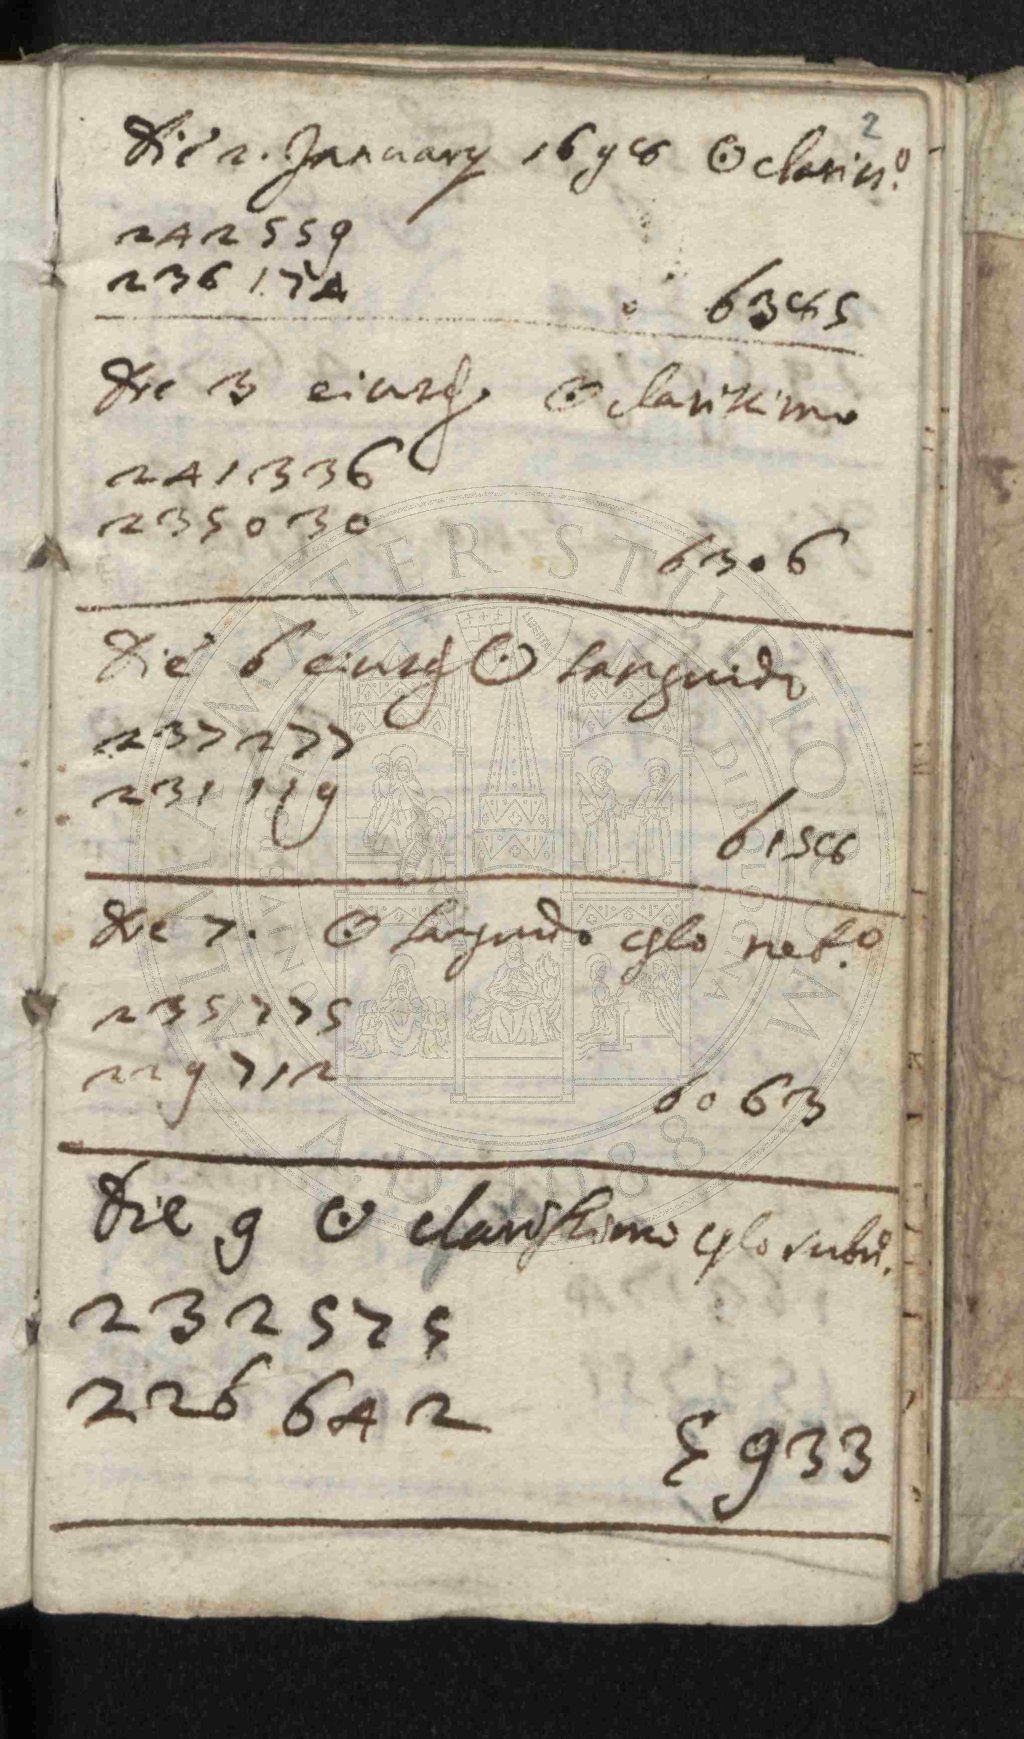 2
Die 2. January 1698 ☉ clariss.º
242559
236174
6385
Die 3 eiusd. ☉ clarissimo
241336
235030
6306
Die 6 eiusd ☉ languido
237277
231119
6158
Die 7. ☉ languido cęlo neb.º
235775
229712
6063
Die 9 ☉ clarissimo cęlo
232575
226642
5933
ALMA MATER STUDIORUM
A.D. 1088